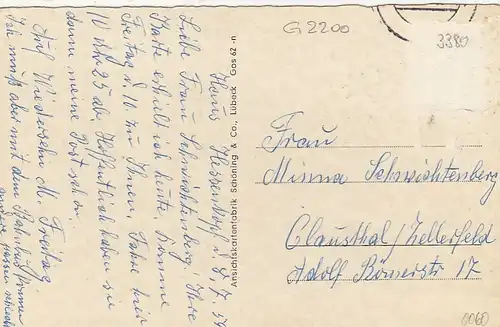 G 2200
3380
Haus Hessenkopf d. 8.7.59
Liebe Frau Schwichtenberg. Ihre
Karte erhielt ich heute, komme
Freitag d. 10 zu Ihnen, Fahre hier
10 Uhr 25 ab, Hoffentlich haben sie
dann meine Post schon.
Auf Wiedersehn M. Freitag.
Ich muß aber mit dem Bahnbus
Ansichtskartenfabrik Schöning & Co., Lübeck Gos 62 -n
Frau
Minna Schwichtenberg
Clausthal/Zellerfeld
Adolf Römerstr 17
0060